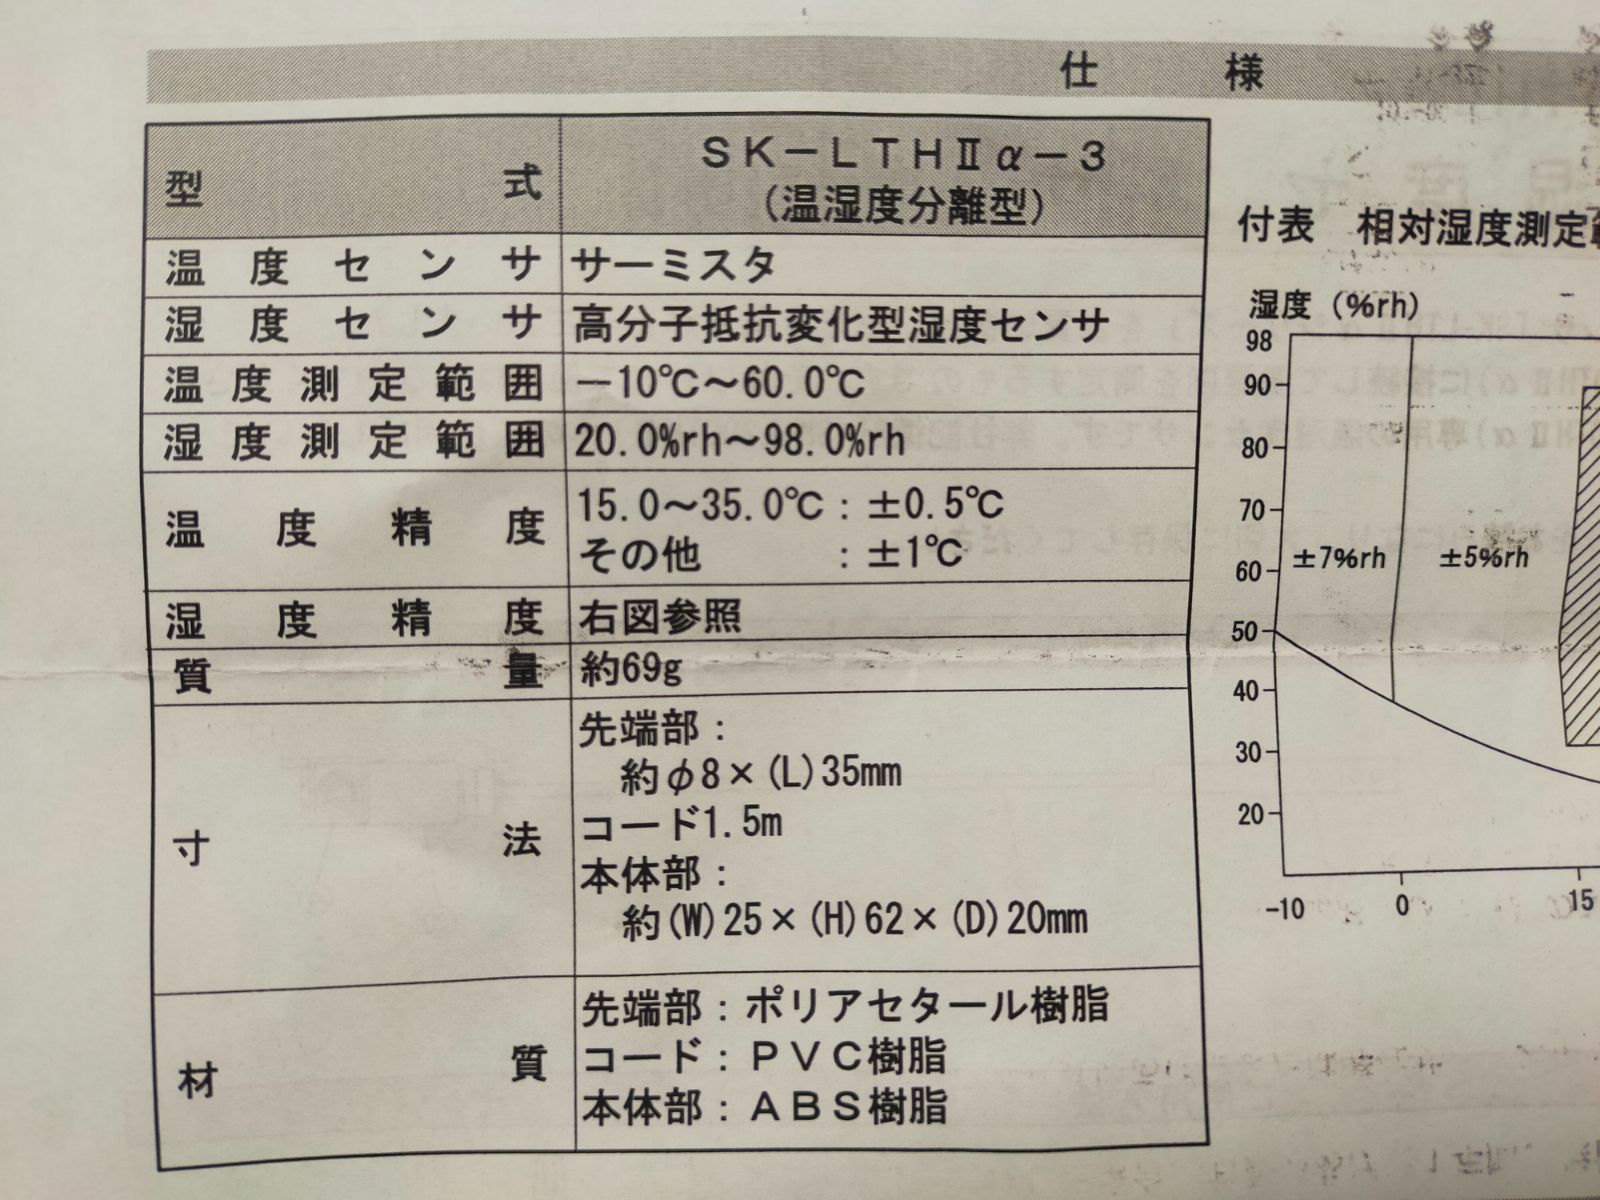 仕様
型式 SK-LTHⅡα-3
(温湿度分離型)
温度センサ サーミスタ
湿度センサ 高分子抵抗変化型湿度センサ
温度測定範囲 -10℃～60.0℃
湿度測定範囲 20.0%rh～98.0%rh
温度精度 15.0～35.0℃：±0.5℃
その他 ：±1℃
湿度精度 右図参照
質量 約69g
寸法 先端部：
約φ8×(L)35mm
コード1.5m
本体部：
約(W)25×(H)62×(D)20mm
材質 先端部：ポリアセタール樹脂
コード：PVC樹脂
本体部：ABS樹脂
付表 相対湿度測定
湿度 (%rh)
98
90
80
70
60
±7%rh ±5%rh
50
40
30
20
-10 0 15